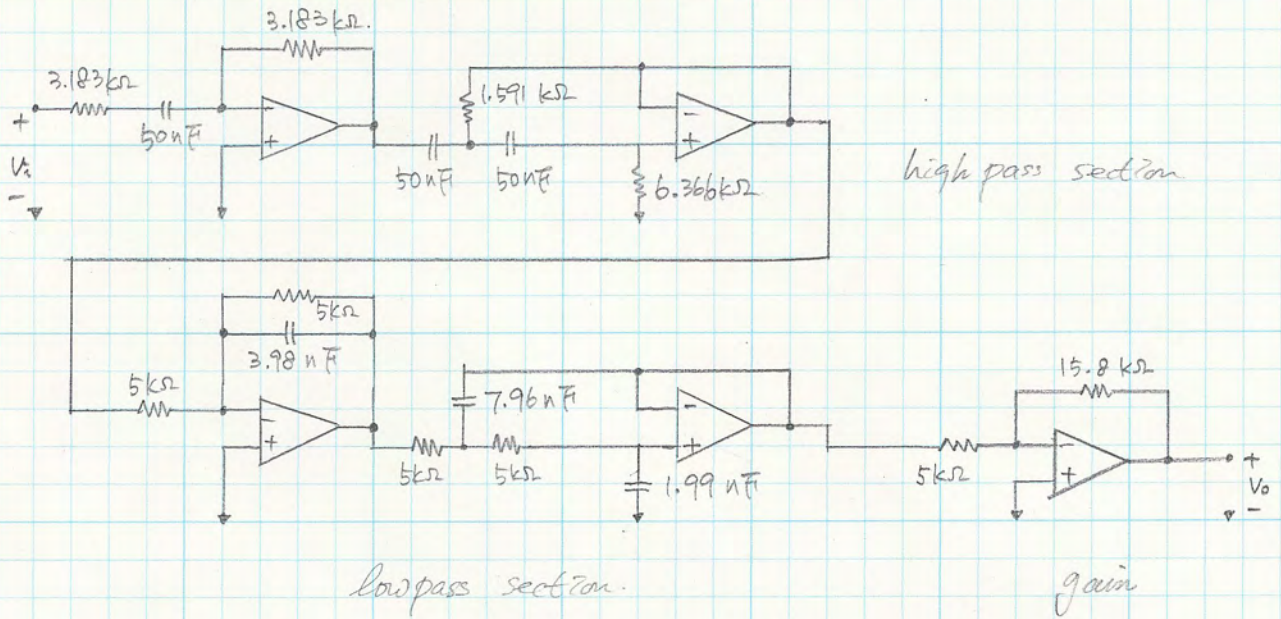 3.183kΩ.
3.183kΩ
50nF
+
Vi
-
-
+
50nF
50nF
1.591 kΩ
6.366kΩ
-
+
high pass section
5kΩ
5kΩ
3.98 nF
-
+
5kΩ
5kΩ
7.96nF
1.99 nF
-
+
5kΩ
15.8 kΩ
-
+
+
Vo
-
lowpass section.
gain